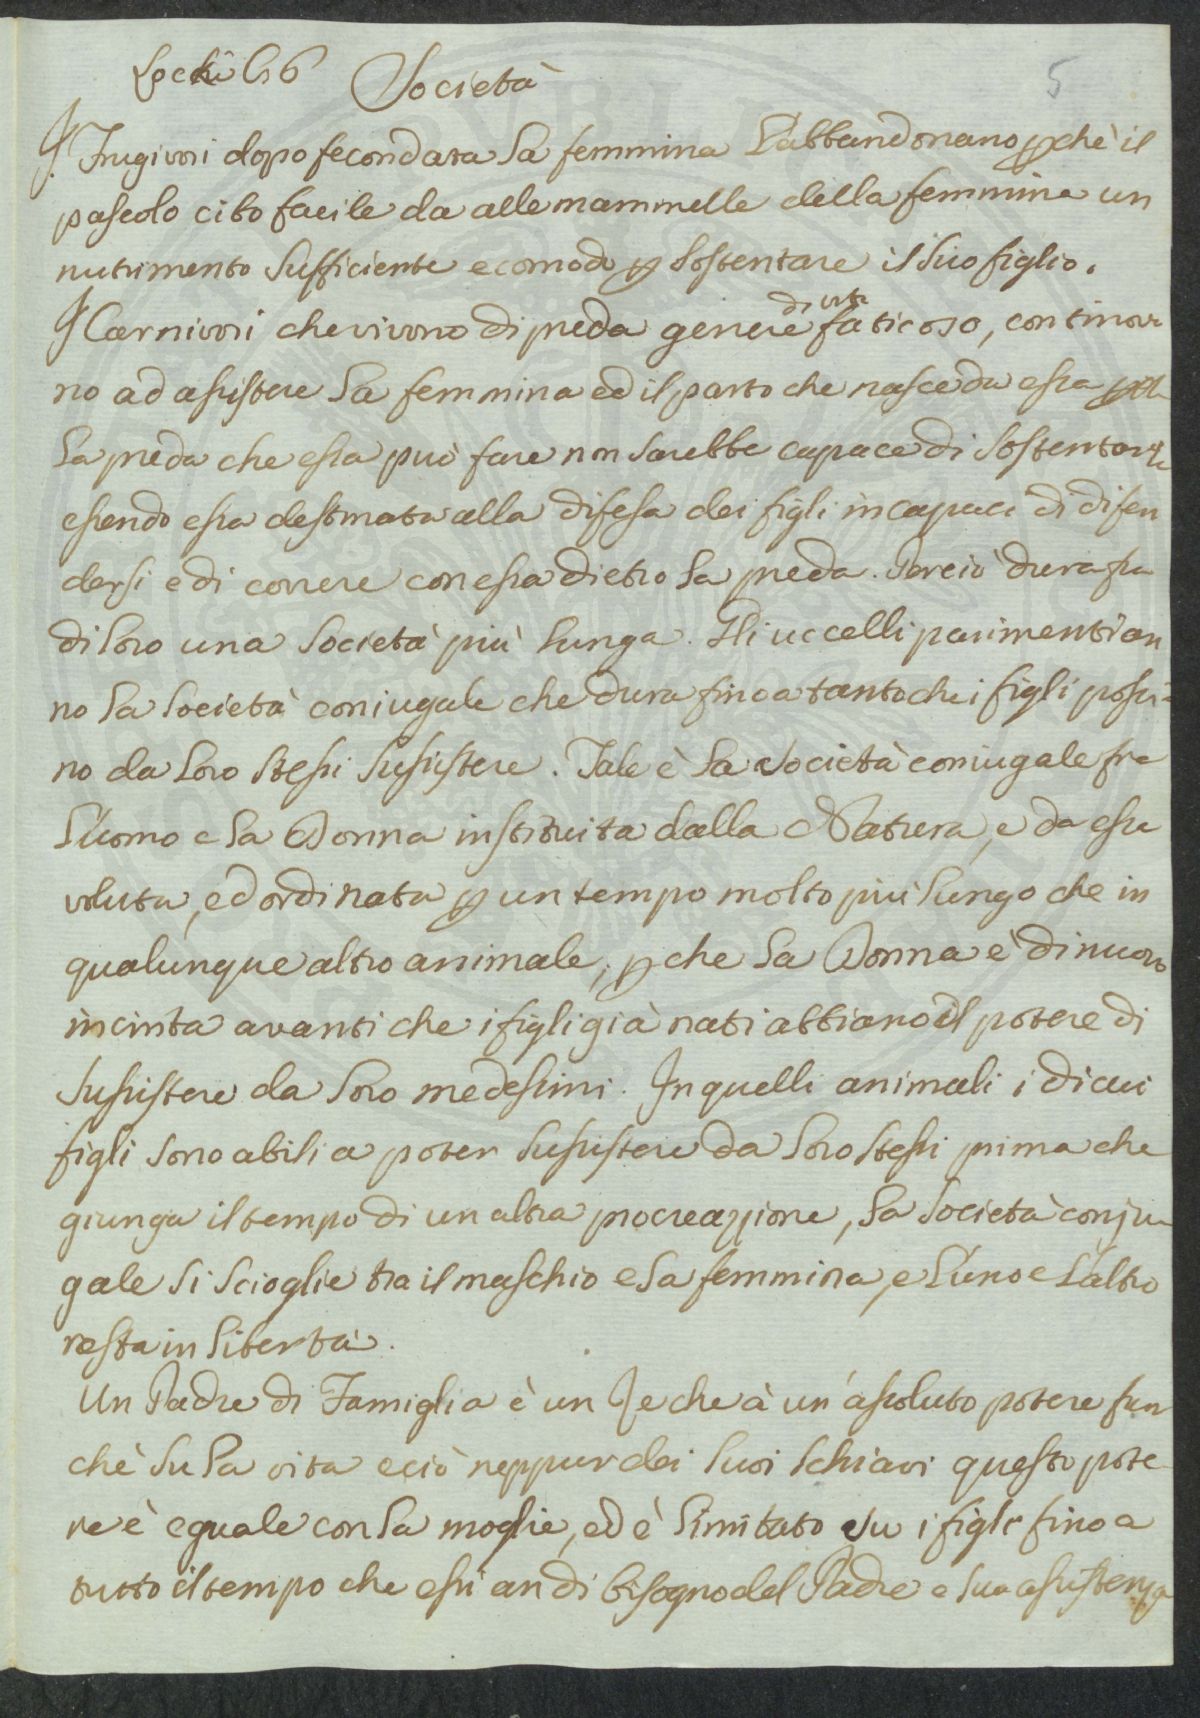 Locki Società
5
I Frugivori dopo fecondata la femmina l'abbandonano pchè il
pascolo cibo facile da alle mammelle della femmina un
nutrimento sufficiente e comodo p sostentare il suo figlio.
I Carnivori che vivono di preda genere di vita faticoso, continova
no ad assistere la femmina ed il parto che nasce da essa
la preda che essa può fare non sarebbe capace di sostentar
essendo essa destinata alla difesa dei figli incapaci di difen
dersi e di correre con essa dietro la preda. Perciò dura fra
di loro una società più lunga. Gli uccelli parimenti an
no la società coniugale che dura fino a tanto che i figli possi=
no da loro stessi sussistere. Tale è la società coniugale fra
l'uomo e la Donna instituita dalla Natura, e da essa
voluta, ed ordinata p un tempo molto più lungo che in
qualunque altro animale; p che la Donna è di nuovo
incinta avanti che i figli già nati abbiano il potere di
sussistere da loro medesimi. In quelli animali i di cui
figli sono abili a poter sussistere da loro stessi prima che
giunga il tempo di un altra procreazione, la società conju=
gale si scioglie tra il maschio e la femmina, e l'uno e l'altro
resta in libertà.
Un Padre di Famiglia è un Re che à un'assoluto potere fuor
chè su la vita e ciò neppur dei suoi schiavi questo pote=
re è eguale con la moglie, ed è limitato su i figli fino a
tutto il tempo che essi an di bisogno del Padre e sua assistenza